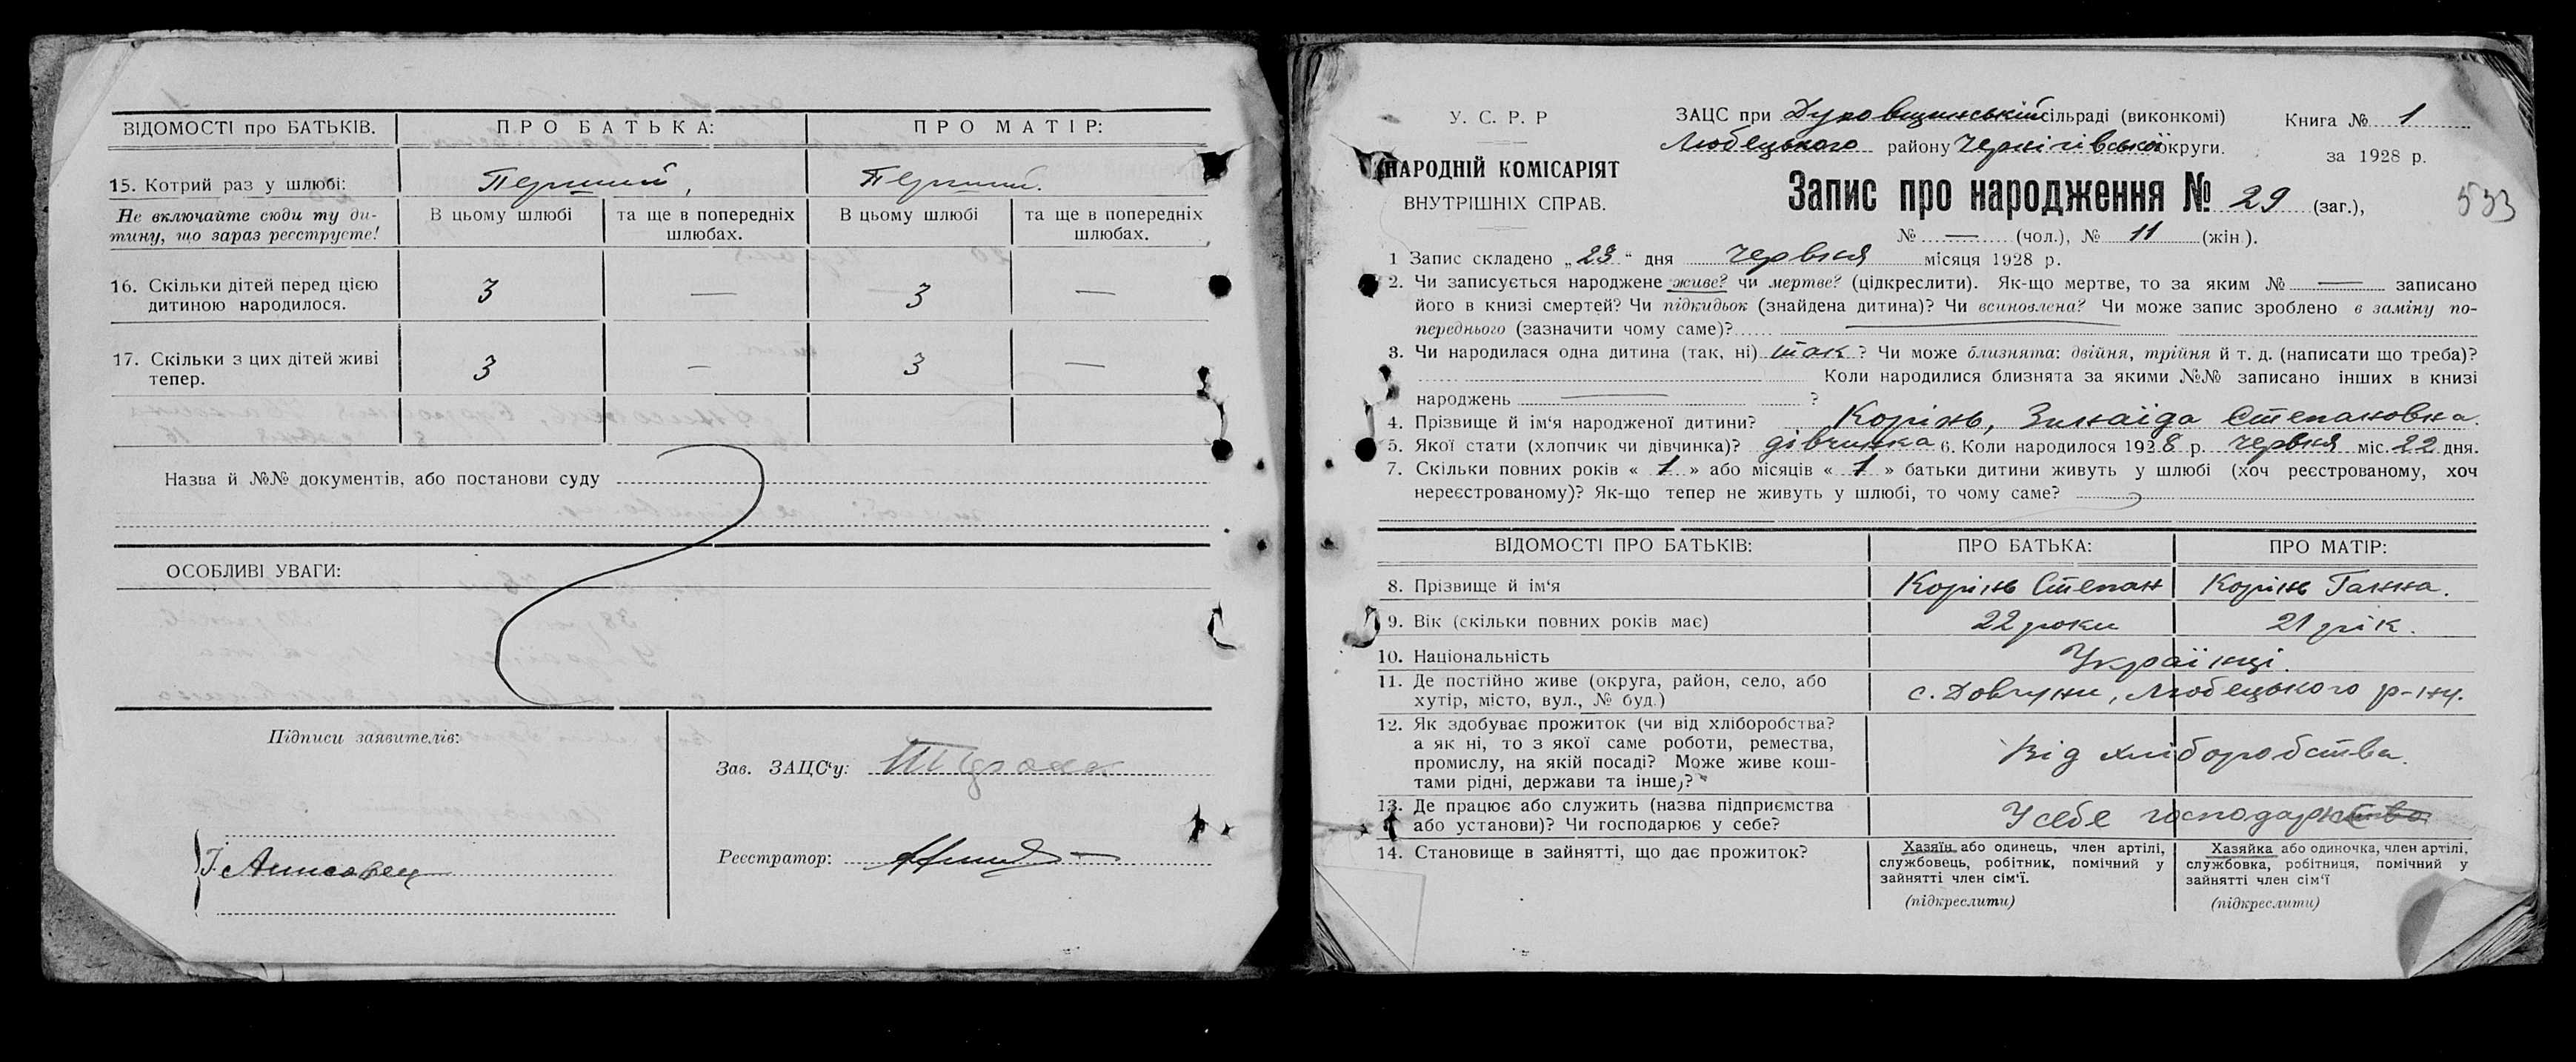 ВІДОМОСТІ про БАТЬКІВ. ПРО БАТЬКА: ПРО МАТІР:
15. Котрий раз у шлюбі: Перший, Перший.
Не включайте сюди ту ди- В цьому шлюбі та ще в попередніх В цьому шлюбі та ще в попередніх
тину, що зараз реєструєте! шлюбах. шлюбах.
16. Скільки дітей перед цією 3 — 3 —
дитиною народилося.
17. Скільки з цих дітей живі 3 — 3 —
тепер.
Назва й №№ документів, або постанови суду
ОСОБЛИВІ УВАГИ:
Підписи заявителів:
Зав. ЗАЦС‘у:
Реєстратор:
У. С. Р. Р
НАРОДНІЙ КОМІСАРІЯТ
ВНУТРІШНІХ СПРАВ.
ЗАЦС при сільраді (виконкомі)
Любецького району Чернігівської округи.
Книга № 1
за 1928 р.
Запис про народження № 29 (заг.),
533
№ — (чол.), № 11 (жін.).
1 Запис складено „23“ дня червня місяця 1928 р.
2. Чи записується народжене живе? чи мертве? (підкреслити). Як-що мертве, то за яким № — записано
його в книзі смертей? Чи підкидьок (знайдена дитина)? Чи всиновлена? Чи може запис зроблено в заміну по-
переднього (зазначити чому саме)?
3. Чи народилася одна дитина (так, ні) так? Чи може близнята: двійня, трійня й т. д. (написати що треба)?
Коли народилися близнята за якими №№ записано інших в книзі
народжень — ?
4. Прізвище й ім‘я народженої дитини? Корінь, Зинаїда Степановна.
5. Якої стати (хлопчик чи дівчинка)? дівчинка 6. Коли народилося 1928 р. червня міс. 22 дня.
7. Скільки повних років « 1 » або місяців « 1 » батьки дитини живуть у шлюбі (хоч реєстрованому, хоч
нереєстрованому)? Як-що тепер не живуть у шлюбі, то чому саме?
ВІДОМОСТІ ПРО БАТЬКІВ: ПРО БАТЬКА: ПРО МАТІР:
8. Прізвище й ім‘я Корінь Степан Корінь Ганна.
9. Вік (скільки повних років має) 22 роки 21 рік.
10. Національність Українці.
11. Де постійно живе (округа, район, село, або
хутір, місто, вул., № буд.) с. Довгуни, Любецького р-ну.
12. Як здобуває прожиток (чи від хліборобства?
а як ні, то з якої саме роботи, ремества,
промислу, на якій посаді? Може живе кош-
тами рідні, держави та інше)? Від хліборобства.
13. Де працює або служить (назва підприємства
або установи)? Чи господарює у себе? У себе
14. Становище в зайнятті, що дає прожиток?
Хазяїн або одинець, член артілі,
службовець, робітник, помічний у
зайнятті член сім‘ї.
(підкреслити)
Хазяйка або одиночка, член артілі,
службовка, робітниця, помічний у
зайнятті член сім‘ї
(підкреслити)